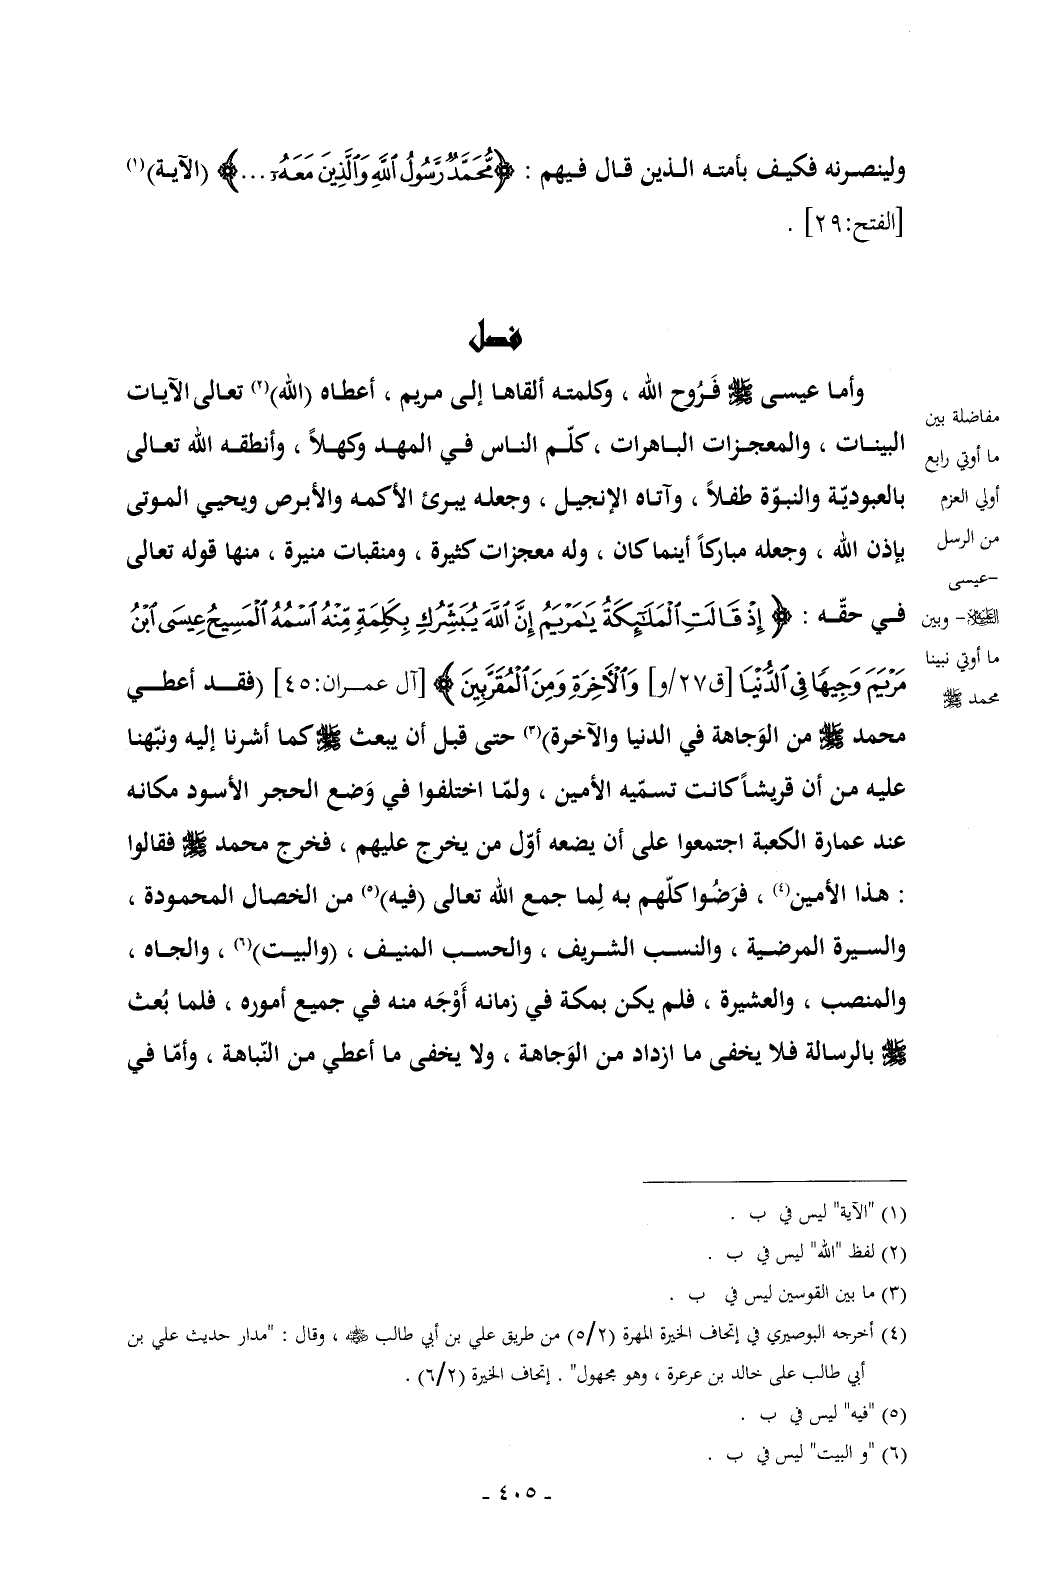 ولينصرنه فكيف بأمته الذين قال فيهم : ﴿مُّحَمَّدٌ رَّسُولُ ٱللَّهِ وَٱلَّذِينَ مَعَهُۥ...﴾ (الآية)(١)
[الفتح:٢٩] .
فصل
وأما عيسى ﷺ فَرُوح الله ، وكلمته ألقاها إلى مريم ، أعطاه (الله)(٢) تعالى الآيات
البينات ، والمعجزات الباهرات ، كلّم الناس في المهد وكهلاً ، وأنطقه الله تعالى
بالعبوديّة والنبوّة طفلاً ، وآتاه الإنجيل ، وجعله يبرئ الأكمه والأبرص ويحيي الموتى
بإذن الله ، وجعله مباركاً أينما كان ، وله معجزات كثيرة ، ومنقبات منيرة ، منها قوله تعالى
في حقّه : ﴿ إِذْ قَالَتِ ٱلْمَلَٰٓئِكَةُ يَٰمَرْيَمُ إِنَّ ٱللَّهَ يُبَشِّرُكِ بِكَلِمَةٍ مِّنْهُ ٱسْمُهُ ٱلْمَسِيحُ عِيسَى ٱبْنُ
مَرْيَمَ وَجِيهًا فِى ٱلدُّنْيَا [ق٢٧/و] وَٱلْءَاخِرَةِ وَمِنَ ٱلْمُقَرَّبِينَ ﴾ [آل عمران:٤٥] (فقد أعطي
محمد ﷺ من الوَجاهة في الدنيا والآخرة)(٣) حتى قبل أن يبعث ﷺ كما أشرنا إليه ونبّهنا
عليه من أن قريشاً كانت تسمّيه الأمين ، ولمّا اختلفوا في وَضع الحجر الأسود مكانه
عند عمارة الكعبة اجتمعوا على أن يضعه أوّل من يخرج عليهم ، فخرج محمد ﷺ فقالوا
: هذا الأمين(٤) ، فرَضُوا كلّهم به لِما جمع الله تعالى (فيه)(٥) من الخصال المحمودة ،
والسيرة المرضية ، والنسب الشريف ، والحسب المنيف ، (والبيت)(٦) ، والجاه ،
والمنصب ، والعشيرة ، فلم يكن بمكة في زمانه أَوْجَه منه في جميع أموره ، فلما بُعث
ﷺ بالرسالة فلا يخفى ما ازداد من الوَجاهة ، ولا يخفى ما أعطي من النّباهة ، وأمّا في
مفاضلة بين
ما أوتي رابع
أولي العزم
من الرسل
-عيسى
عليه السلام- وبين
ما أوتي نبينا
محمد ﷺ
(١) "الآية" ليس في ب .
(٢) لفظ "الله" ليس في ب .
(٣) ما بين القوسين ليس في ب .
(٤) أخرجه البوصيري في إتحاف الخيرة المهرة (٥/٢) من طريق علي بن أبي طالب رضي الله عنه ، وقال : "مدار حديث علي بن
أبي طالب على خالد بن عرعرة ، وهو مجهول" . إتحاف الخيرة (٦/٢) .
(٥) "فيه" ليس في ب .
(٦) "و البيت" ليس في ب .
- ٤٠٥ -